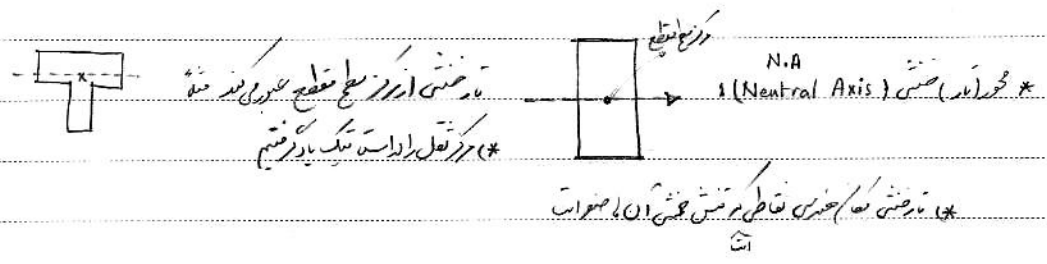 مرکز سطح مقطع
N.A
* محور (تار) خنثی (Neutral Axis) :
تار خنثی از مرکز سطح مقطع عبور می‌کند مثلاً
*) مرکز ثقل را در استاتیک یاد گرفتیم
*) تار خنثی مکان هندسی نقاطی که تنش خمشی آن‌ها صفر است
است